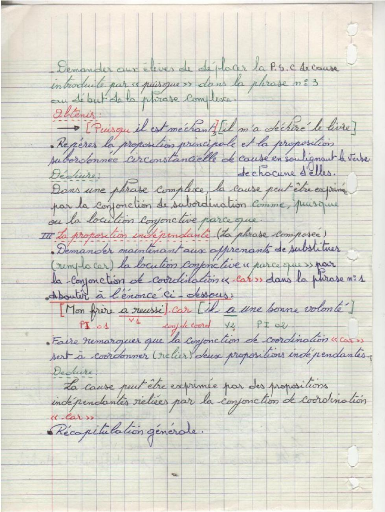 . Demander aux élèves de déplacer la P.S.C de cause
introduite par « puisque » dans la phrase n° 3
au début de la phrase complexe.
Obtenir:
→ [Puisqu'il est méchant], [il m'a déchiré le livre]
. Repérer la proposition principale et la proposition
subordonnée circonstancielle de cause en soulignant le verbe
de chacune d'elles.
Déduire:
Dans une phrase complexe, la cause peut être exprimée
par la conjonction de subordination comme, puisque
ou la locution conjonctive parce que
III La proposition indépendante (La phrase composée)
. Demander maintenant aux apprenants de substituer
(remplacer) la locution conjonctive « parce que » par
la conjonction de coordination « car » dans la phrase n° 1
Aboutir à l'énoncé ci-dessous:
[Mon frère a réussi] car [il a une bonne volonté]
PI 01 V1 conj de coord V2 PI 02
. Faire remarquer que la conjonction de coordination « car »
sert à coordonner (relier) deux propositions indépendantes.
Déduire
La cause peut être exprimée par des propositions
indépendantes reliées par la conjonction de coordination
« car »
. Récapitulation générale.